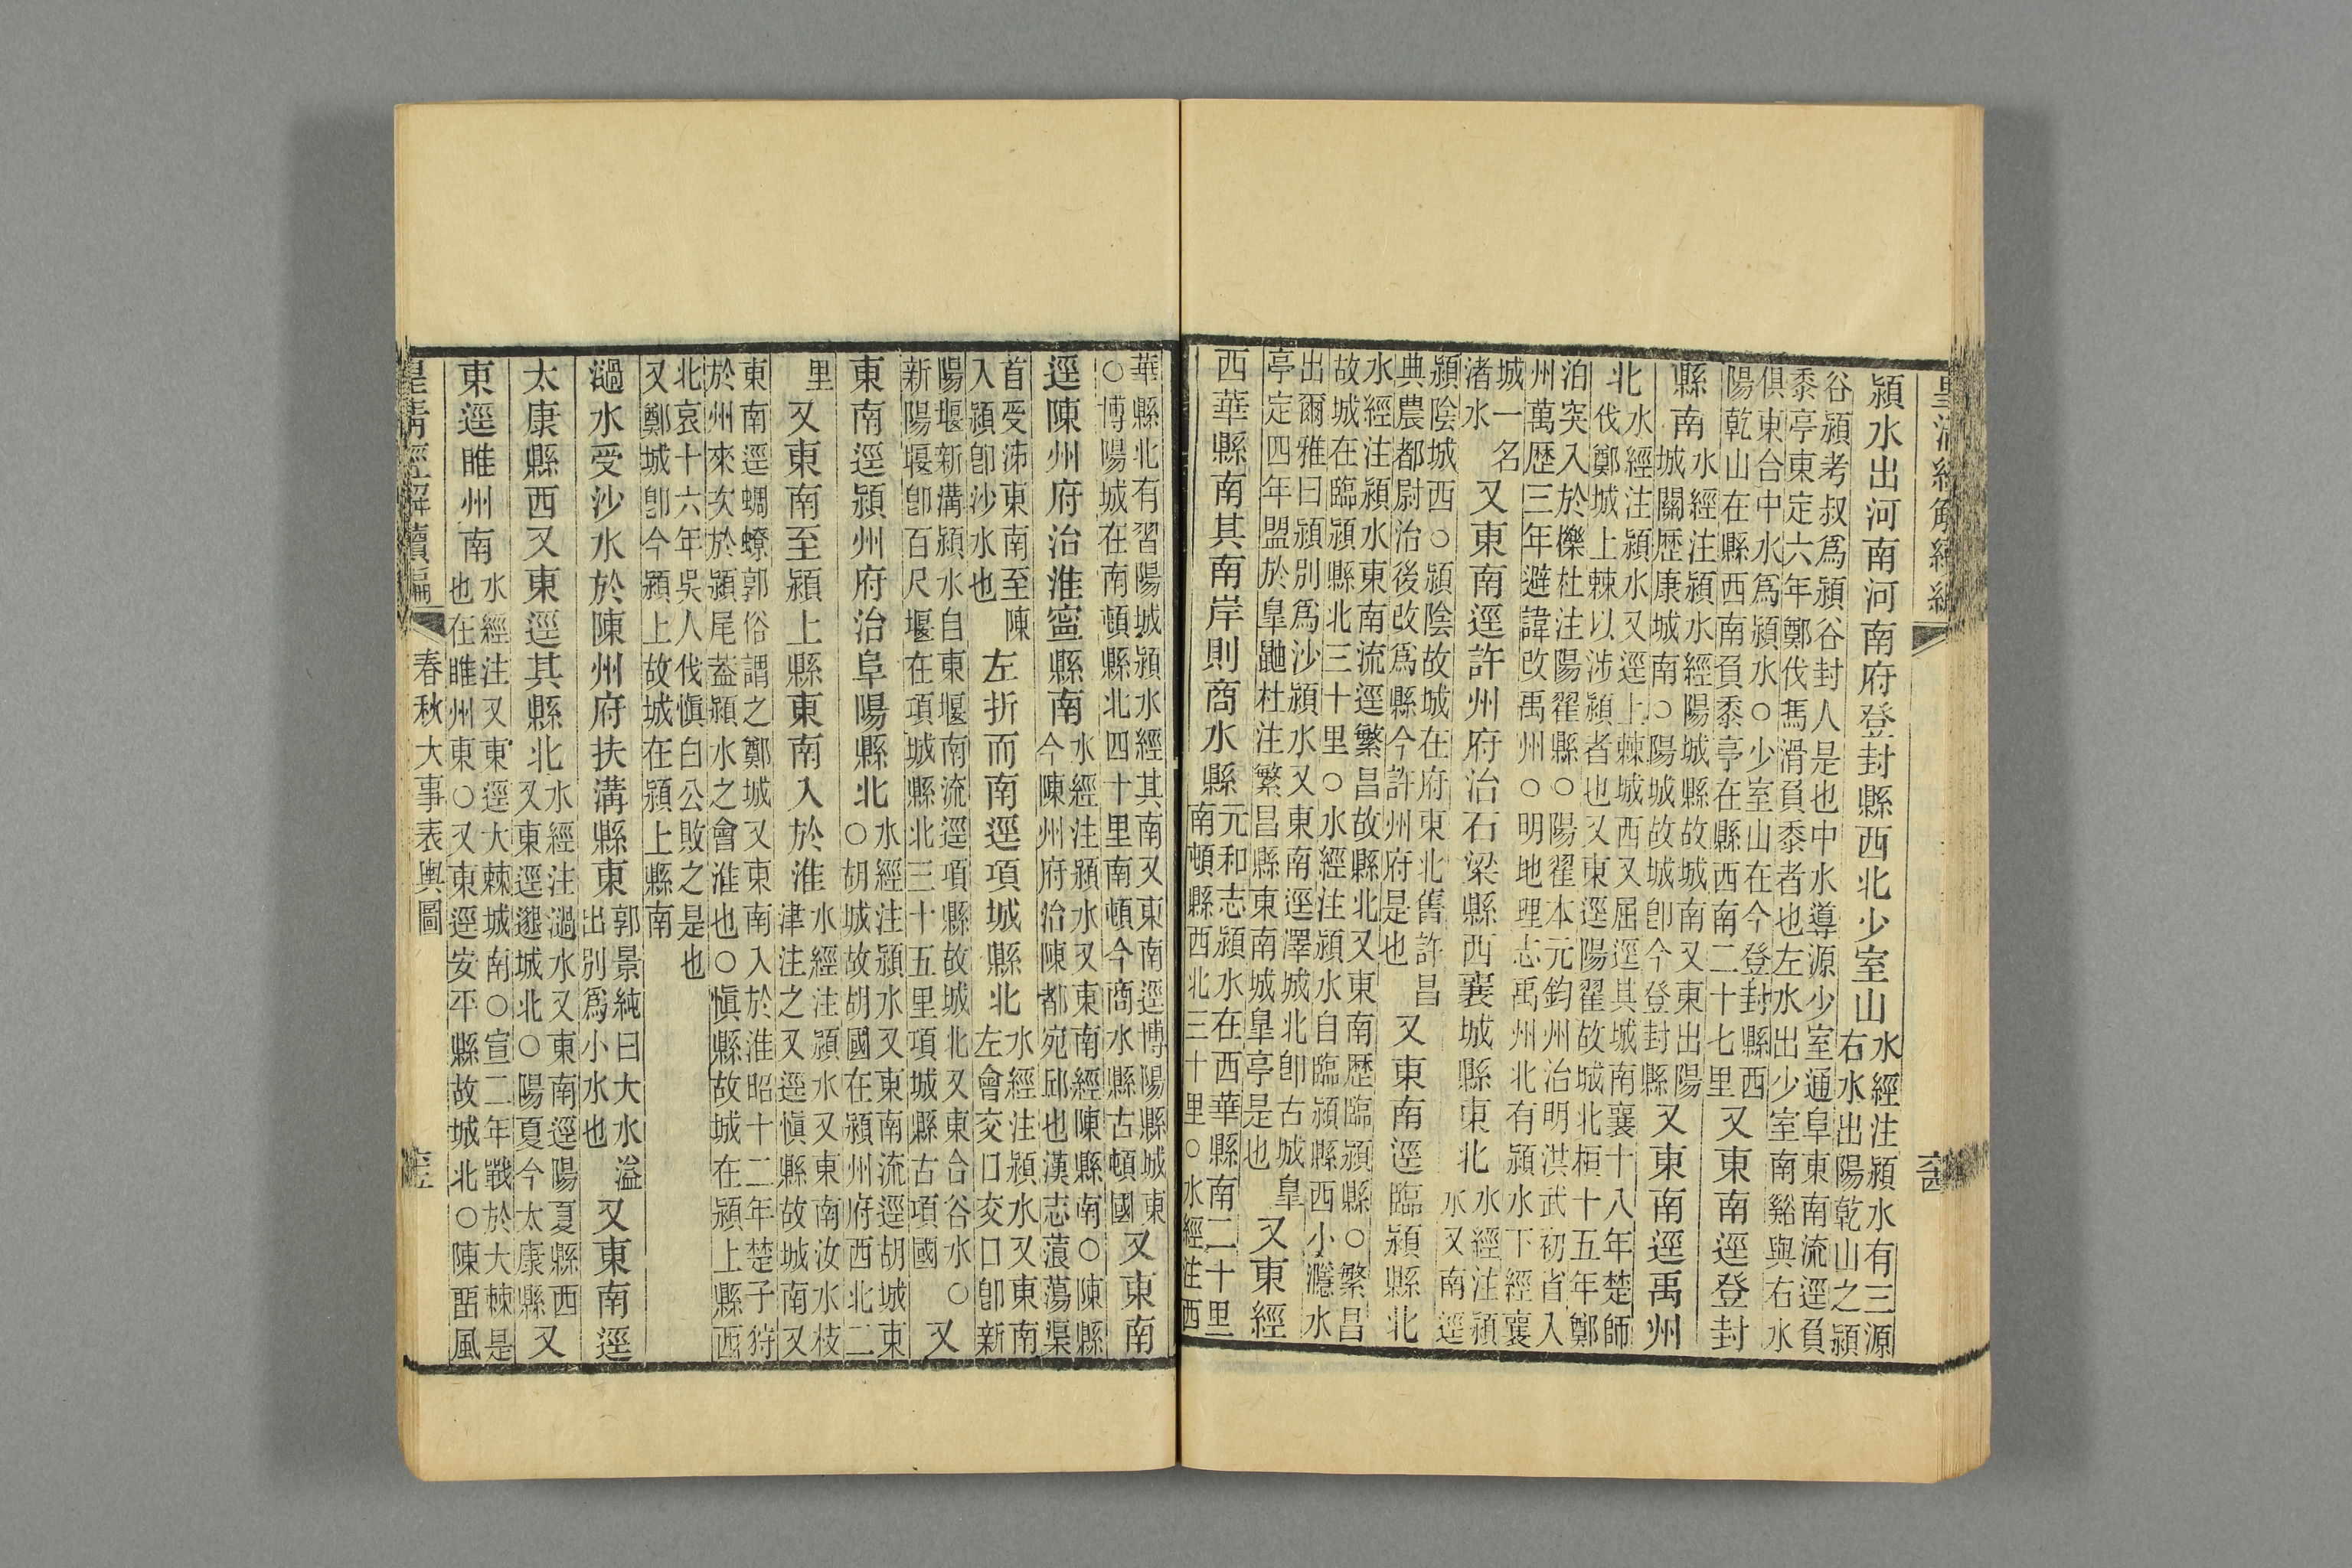 潁水出河南河南府登封縣西北少室山
水經注潁水有三源
右水出陽乾山之潁
谷潁考叔爲潁谷封人是也中水導源少室通阜東南流逕負
黍亭東定六年鄭伐馮滑負黍者也左水出少室南谿與右水
俱東合中水爲潁水○少室山在今登封縣西
陽乾山在縣西南負黍亭在縣西南二十七里
又東南逕登封
縣南
水經注潁水經陽城縣故城南又東出陽
城關歷康城南○陽城故城卽今登封縣
又東南逕禹州
北
水經注潁水又逕上棘城西又屈逕其城南襄十八年楚師
伐鄭城上棘以涉潁者也又東逕陽翟故城北桓十五年鄭
泊突入於櫟杜注陽翟縣○陽翟本元鈞州治明洪武初省入
州萬歷三年避諱改禹州○明地理志禹州北有潁水下經襄
城一名
渚水
又東南逕許州府治石梁縣西襄城縣東北
水經注潁
水又南逕
潁陰城西○潁陰故城在府東北舊許昌
典農都尉治後改爲縣今許州府是也
又東南逕臨潁縣北
水經注潁水東南流逕繁昌故縣北又東南歷臨潁縣○繁昌
故城在臨潁縣北三十里○水經注潁水自臨潁縣西小㶏水
出爾雅曰潁別爲沙潁水又東南逕澤城北卽古城皐
亭定四年盟於皐鼬杜注繁昌縣東南城皐亭是也
又東經
西華縣南其南岸則商水縣
元和志潁水在西華縣南二十里
南頓縣西北三十里○水經注西
華縣北有習陽城潁水經其南又東南逕博陽縣城東
○博陽城在南頓縣北四十里南頓今商水縣古頓國
又東南
逕陳州府治淮寧縣南
水經注潁水又東南經陳縣南○陳縣
今陳州府治陳都宛邱也漢志蒗蕩渠
首受泲東南至陳
入潁卽沙水也
左折而南逕項城縣北
水經注潁水又東南
左會交口交口卽新
陽堰新溝潁水自東堰南流逕項縣故城北又東合谷水○
新陽堰卽百尺堰在項城縣北三十五里項城縣古項國
又
東南逕潁州府治阜陽縣北
水經注潁水又東南流逕胡城東
○胡城故胡國在潁州府西北二
里
又東南至潁上縣東南入於淮
水經注潁水又東南汝水枝
津注之又逕愼縣故城南又
東南逕蜩蟟郭俗謂之鄭城又東南入於淮昭十二年楚子狩
於州來次於潁尾葢潁水之會淮也○愼縣故城在潁上縣西
北哀十六年吳人伐愼白公敗之是也
又鄭城卽今潁上故城在潁上縣南
濄水受沙水於陳州府扶溝縣東
郭景純曰大水溢
出別爲小水也
又東南逕
太康縣西又東逕其縣北
水經注濄水又東南逕陽夏縣西
又東逕邈城北○陽夏今太康縣
又
東逕睢州南
水經注又東逕大棘城南○宣二年戰於大棘是
也在睢州東○又東逕安平縣故城北○陳畱風
皇清經解續編
春秋大事表輿圖